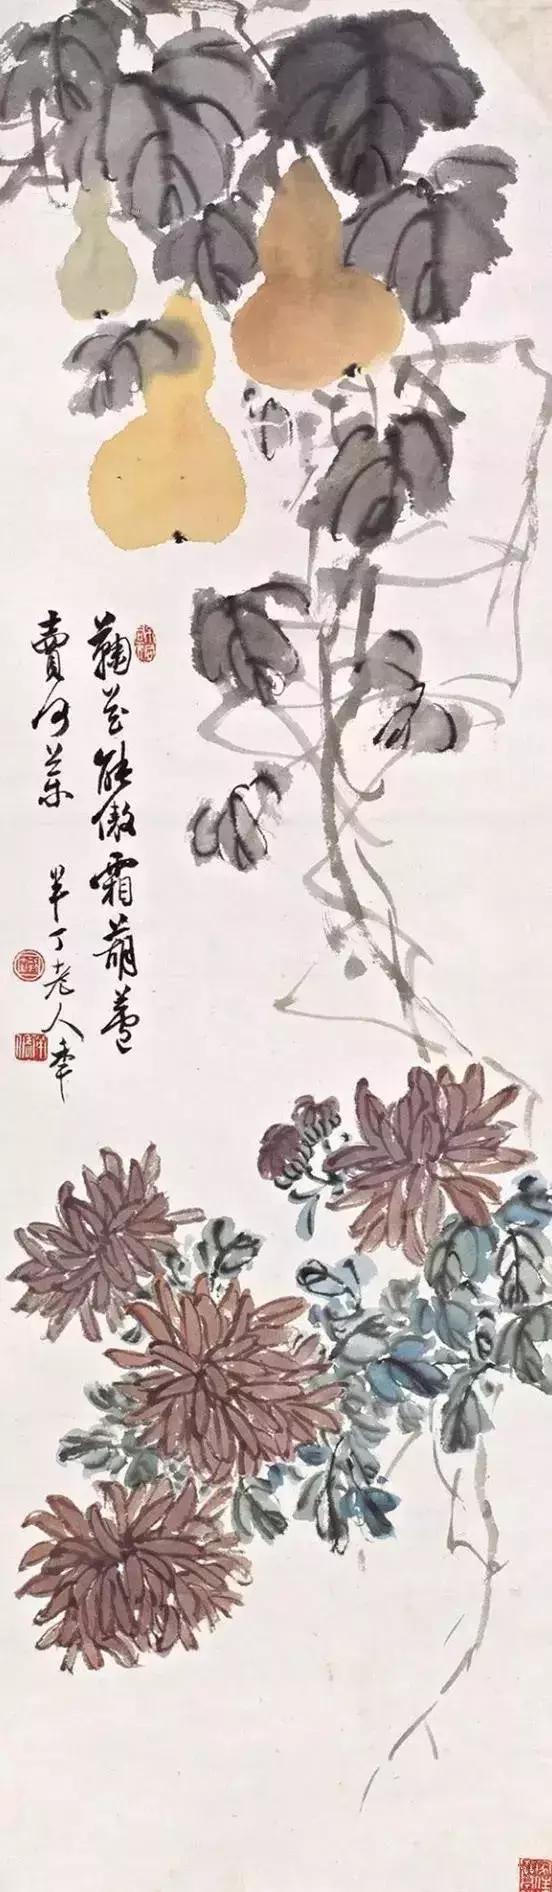 鞠花能傲霜葫蘆
賣何藥
半丁老人年